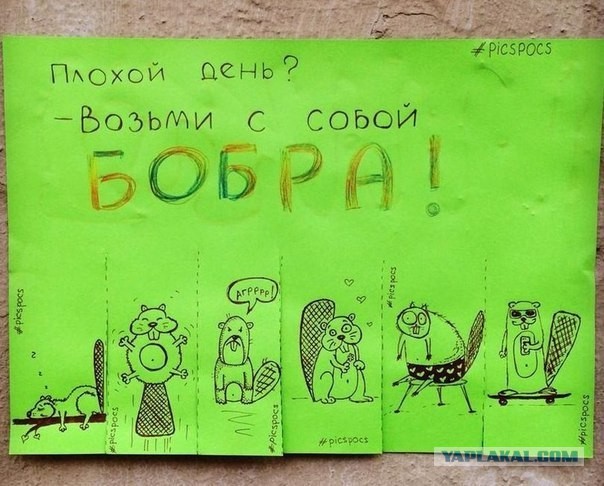 #picspocs
Плохой день?
-Возьми с собой
БОБРА!
#picspocs
#picspocs
#picspocs
Агрррр!
#picspocs
#picspocs
#picspocs
#picspocs
YAPLAKAL.COM